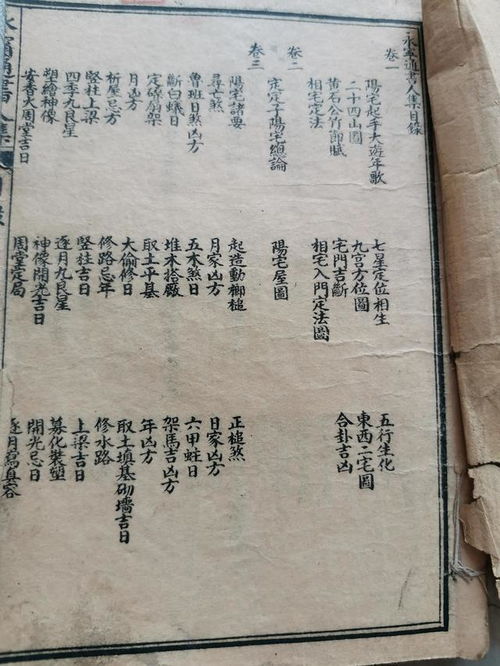 永寧通書人集目錄
卷一
陽宅起手大遊年歌
七星定位相生
五行生化
二十四山圖
九宮方位圖
東西二宅圖
黃石公竹節賦
宅門吉斷
合卦吉凶
相宅定法
相宅入門定法圖
卷二
定定子陽宅總論
陽宅屋圖
卷三
陽宅諸要
起造動櫛槌
正槌煞
尋亡煞
月家凶方
日家凶方
魯班日煞凶方
五木煞日
六甲蛀日
斷白蟻日
堆木搭廠
架馬吉凶方
定磉扇架
取土平基
年凶方
月凶方
大偷修日
取土填基砌墻吉日
析屋忌方
修路忌年
修水路
豎柱上梁
豎柱吉日
上梁吉日
四季九良星
逐月九良星
募化裝塑
塑繪神像
神像開光吉日
開光忌日
安香火周堂吉日
周堂定局
逐月寫真容